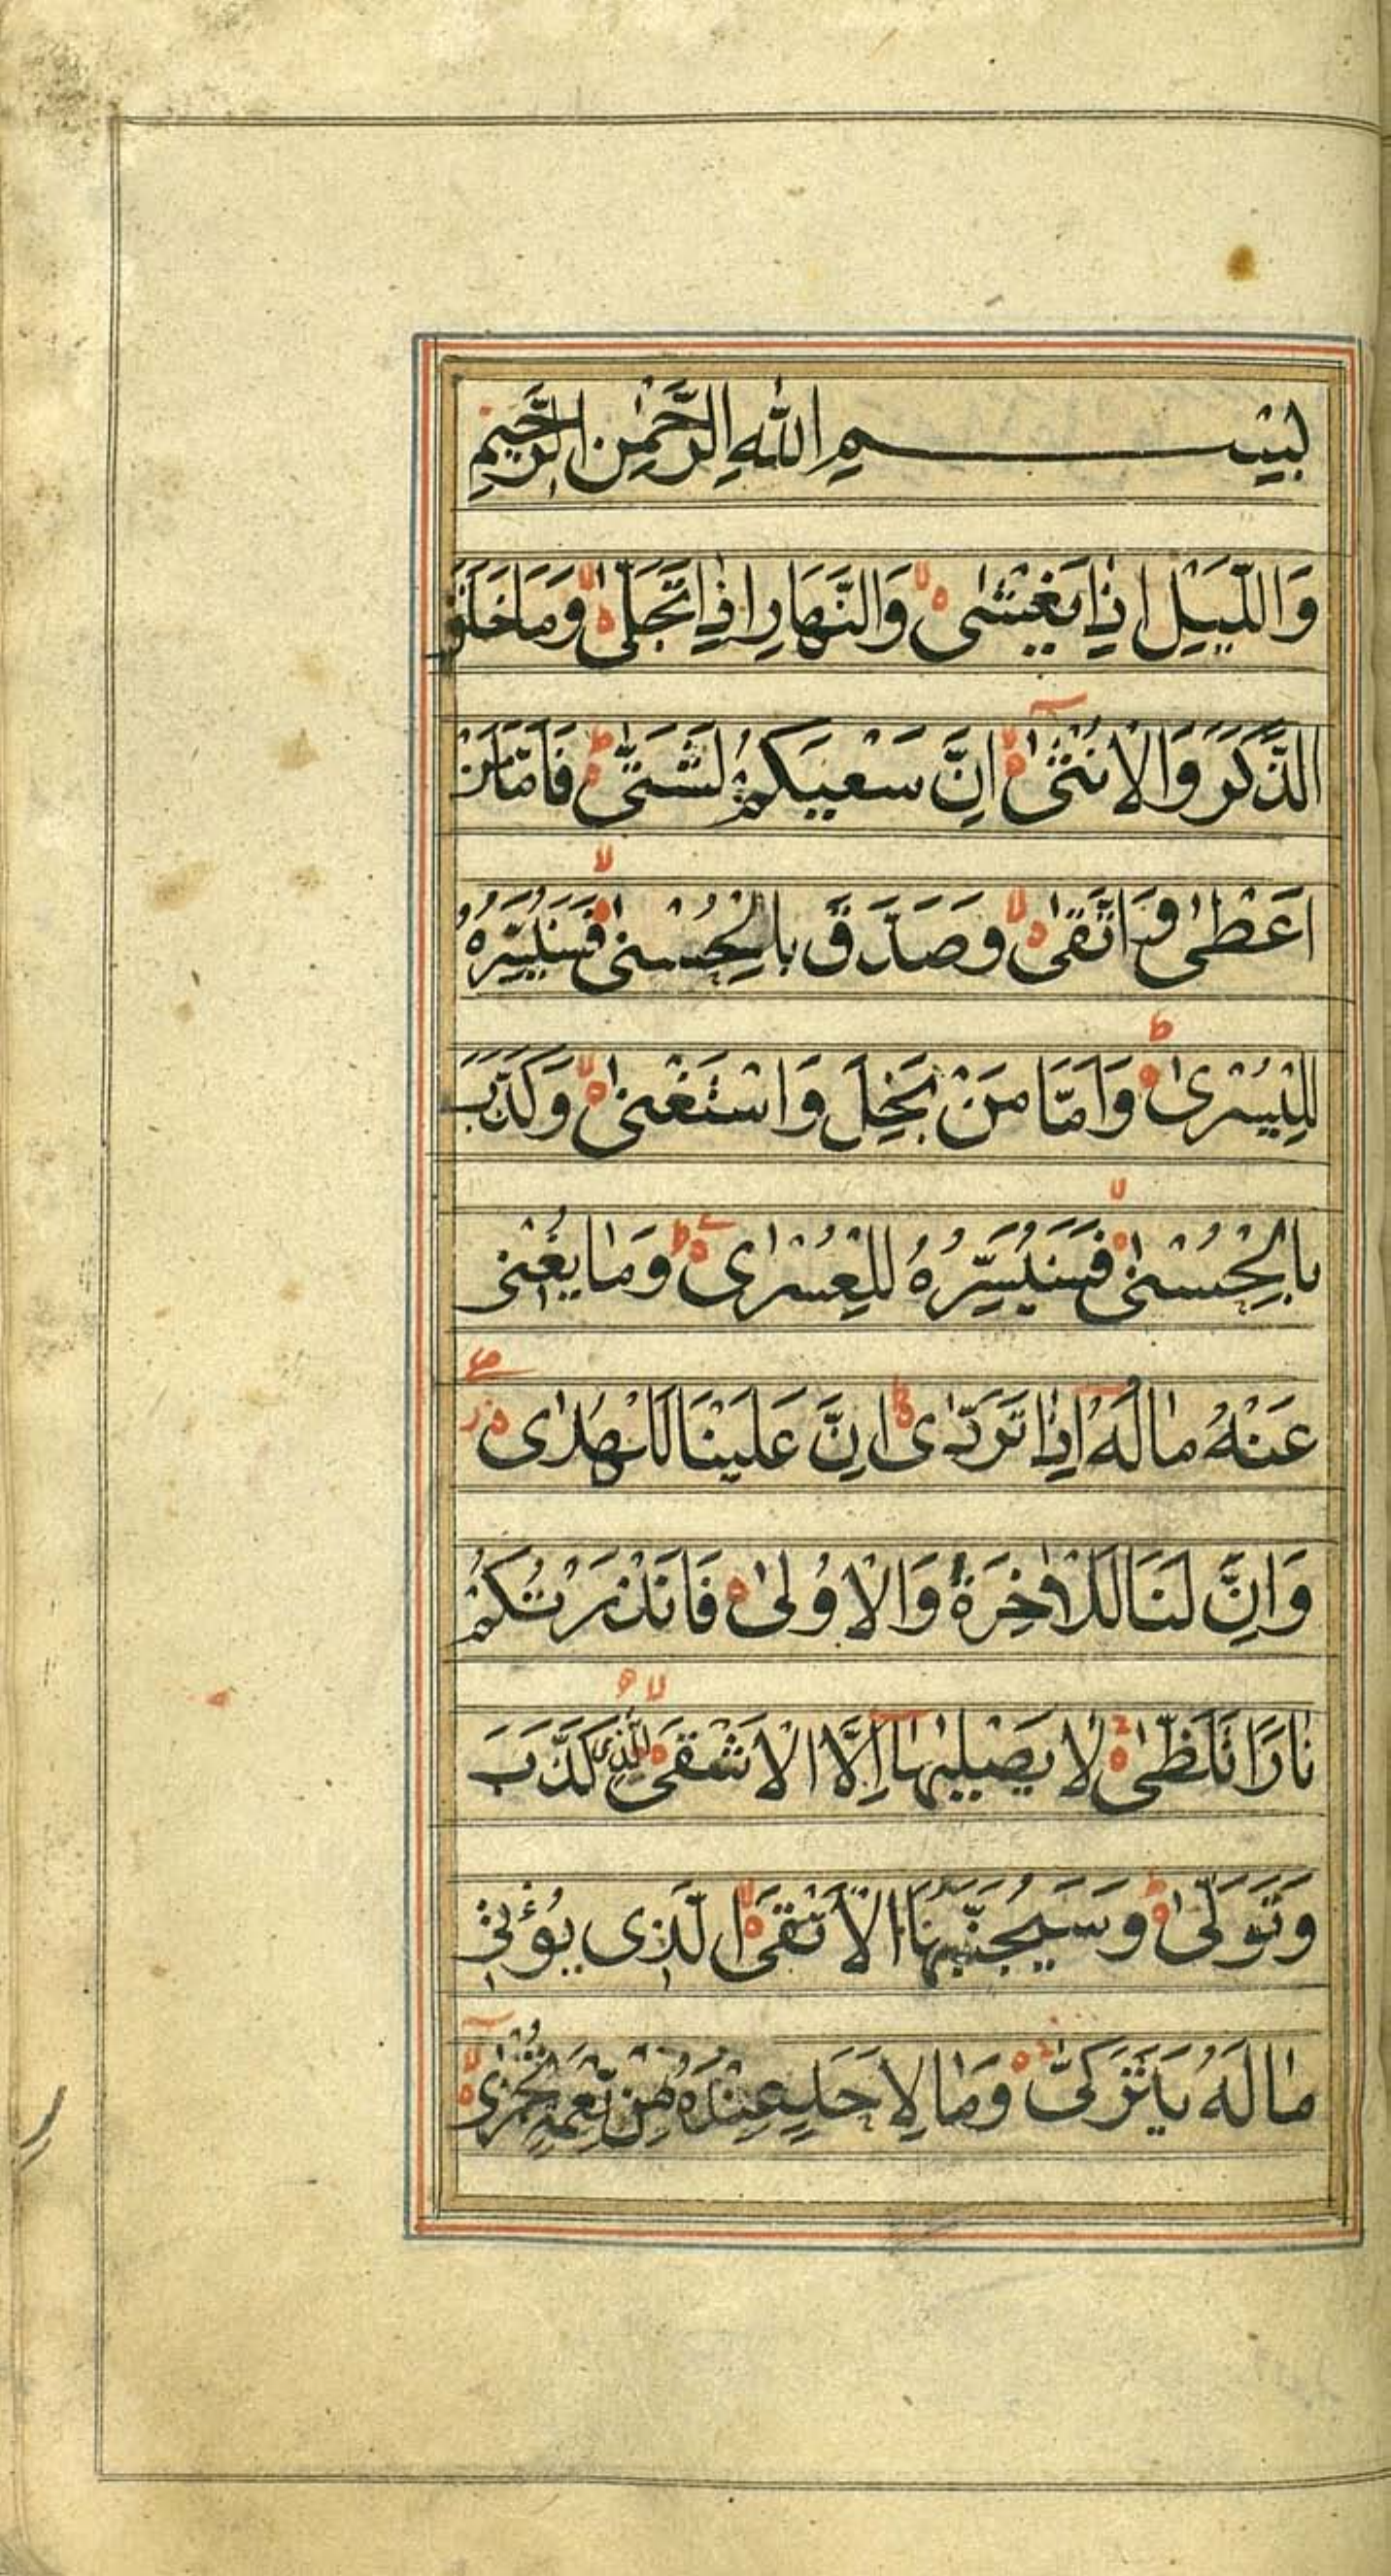 بِسْمِ اللّٰهِ الرَّحْمٰنِ الرَّحِيْمِ
وَالَّيْلِ اِذَا يَغْشٰى وَالنَّهَارِ اِذَا تَجَلّٰى وَمَا خَلَقَ
الذَّكَرَ وَالْاُنْثٰى اِنَّ سَعْيَكُمْ لَشَتّٰى فَاَمَّا مَنْ
اَعْطٰى وَاتَّقٰى وَصَدَّقَ بِالْحُسْنٰى فَسَنُيَسِّرُهُ
لِلْيُسْرٰى وَاَمَّا مَنْ بَخِلَ وَاسْتَغْنٰى وَكَذَّبَ
بِالْحُسْنٰى فَسَنُيَسِّرُهُ لِلْعُسْرٰى وَمَا يُغْنِى
عَنْهُ مَالُهُ اِذَا تَرَدّٰى اِنَّ عَلَيْنَا لَلْهُدٰى
وَاِنَّ لَنَا لَلْاٰخِرَةَ وَالْاُوْلٰى فَاَنْذَرْتُكُمْ
نَارًا تَلَظّٰى لَا يَصْلٰيهَا اِلَّا الْاَشْقَى الَّذِى كَذَّبَ
وَتَوَلّٰى وَسَيُجَنَّبُهَا الْاَتْقَى الَّذِى يُؤْتِىْ
مَالَهُ يَتَزَكّٰى وَمَا لِاَحَدٍ عِنْدَهُ مِنْ نِعْمَةٍ تُجْزٰى